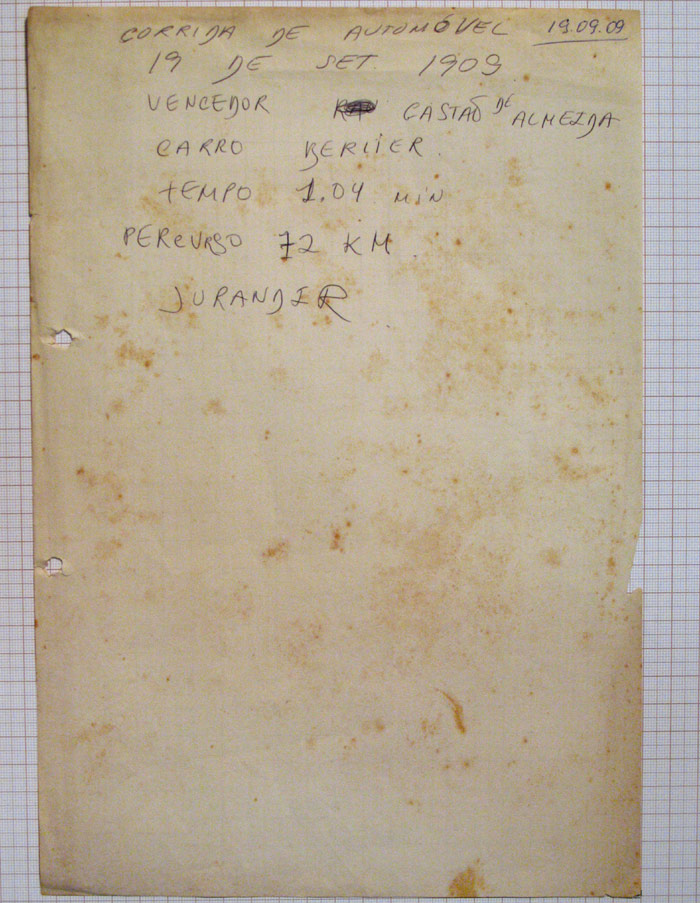 CORRIDA DE AUTOMÓVEL 19.09.09
19 DE SET. 1909
VENCEDOR GASTAÕ DE ALMEIDA
CARRO BERLIER.
TEMPO 1.04 MIN
PERCURSO 72 KM.
JURANDIR